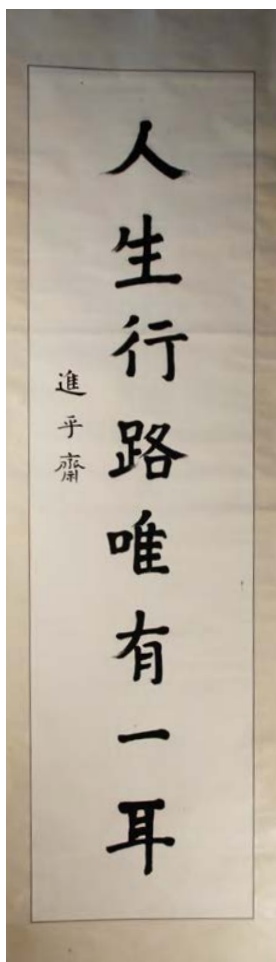 人生行路唯有一耳
進乎齋